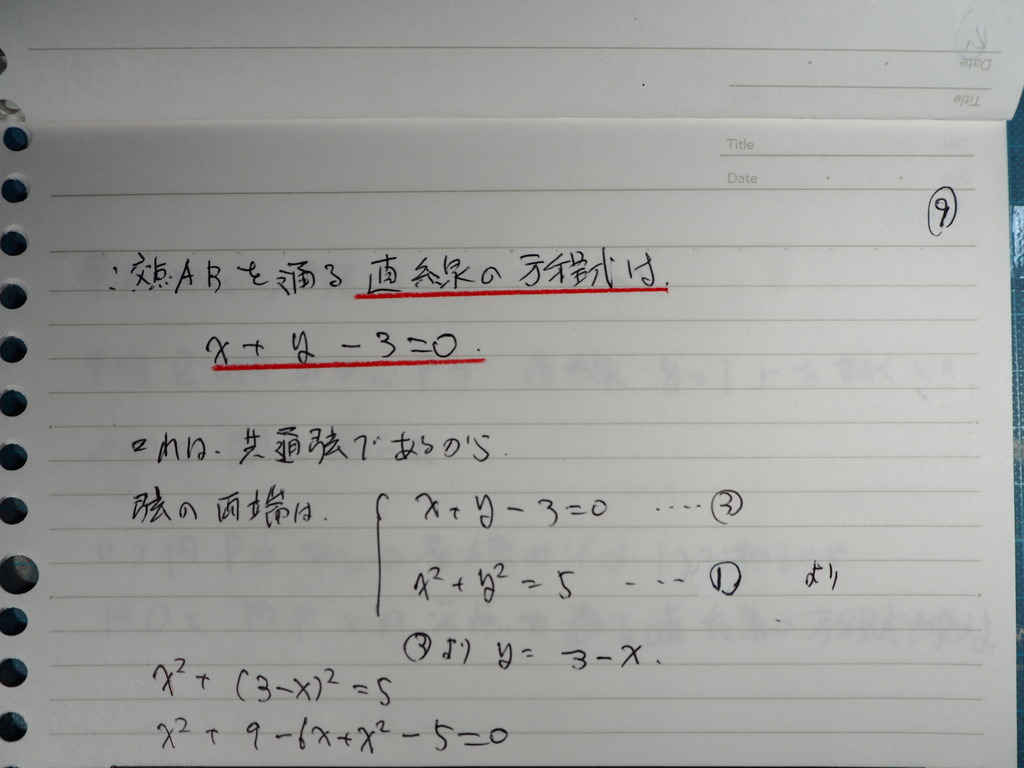 Date
Title
Title
Date
⑨
∴交点ABを通る直線の方程式は.
x + y - 3 = 0.
これは、共通弦であるから.
弦の両端は. x + y - 3 = 0 ‥‥③
x² + y² = 5 ‥‥① より
③より y = 3 - x.
x² + (3-x)² = 5
x² + 9 - 6x + x² - 5 = 0